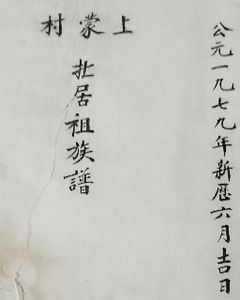 公元一九七九年新歷六月吉日
上蒙村
居祖族譜